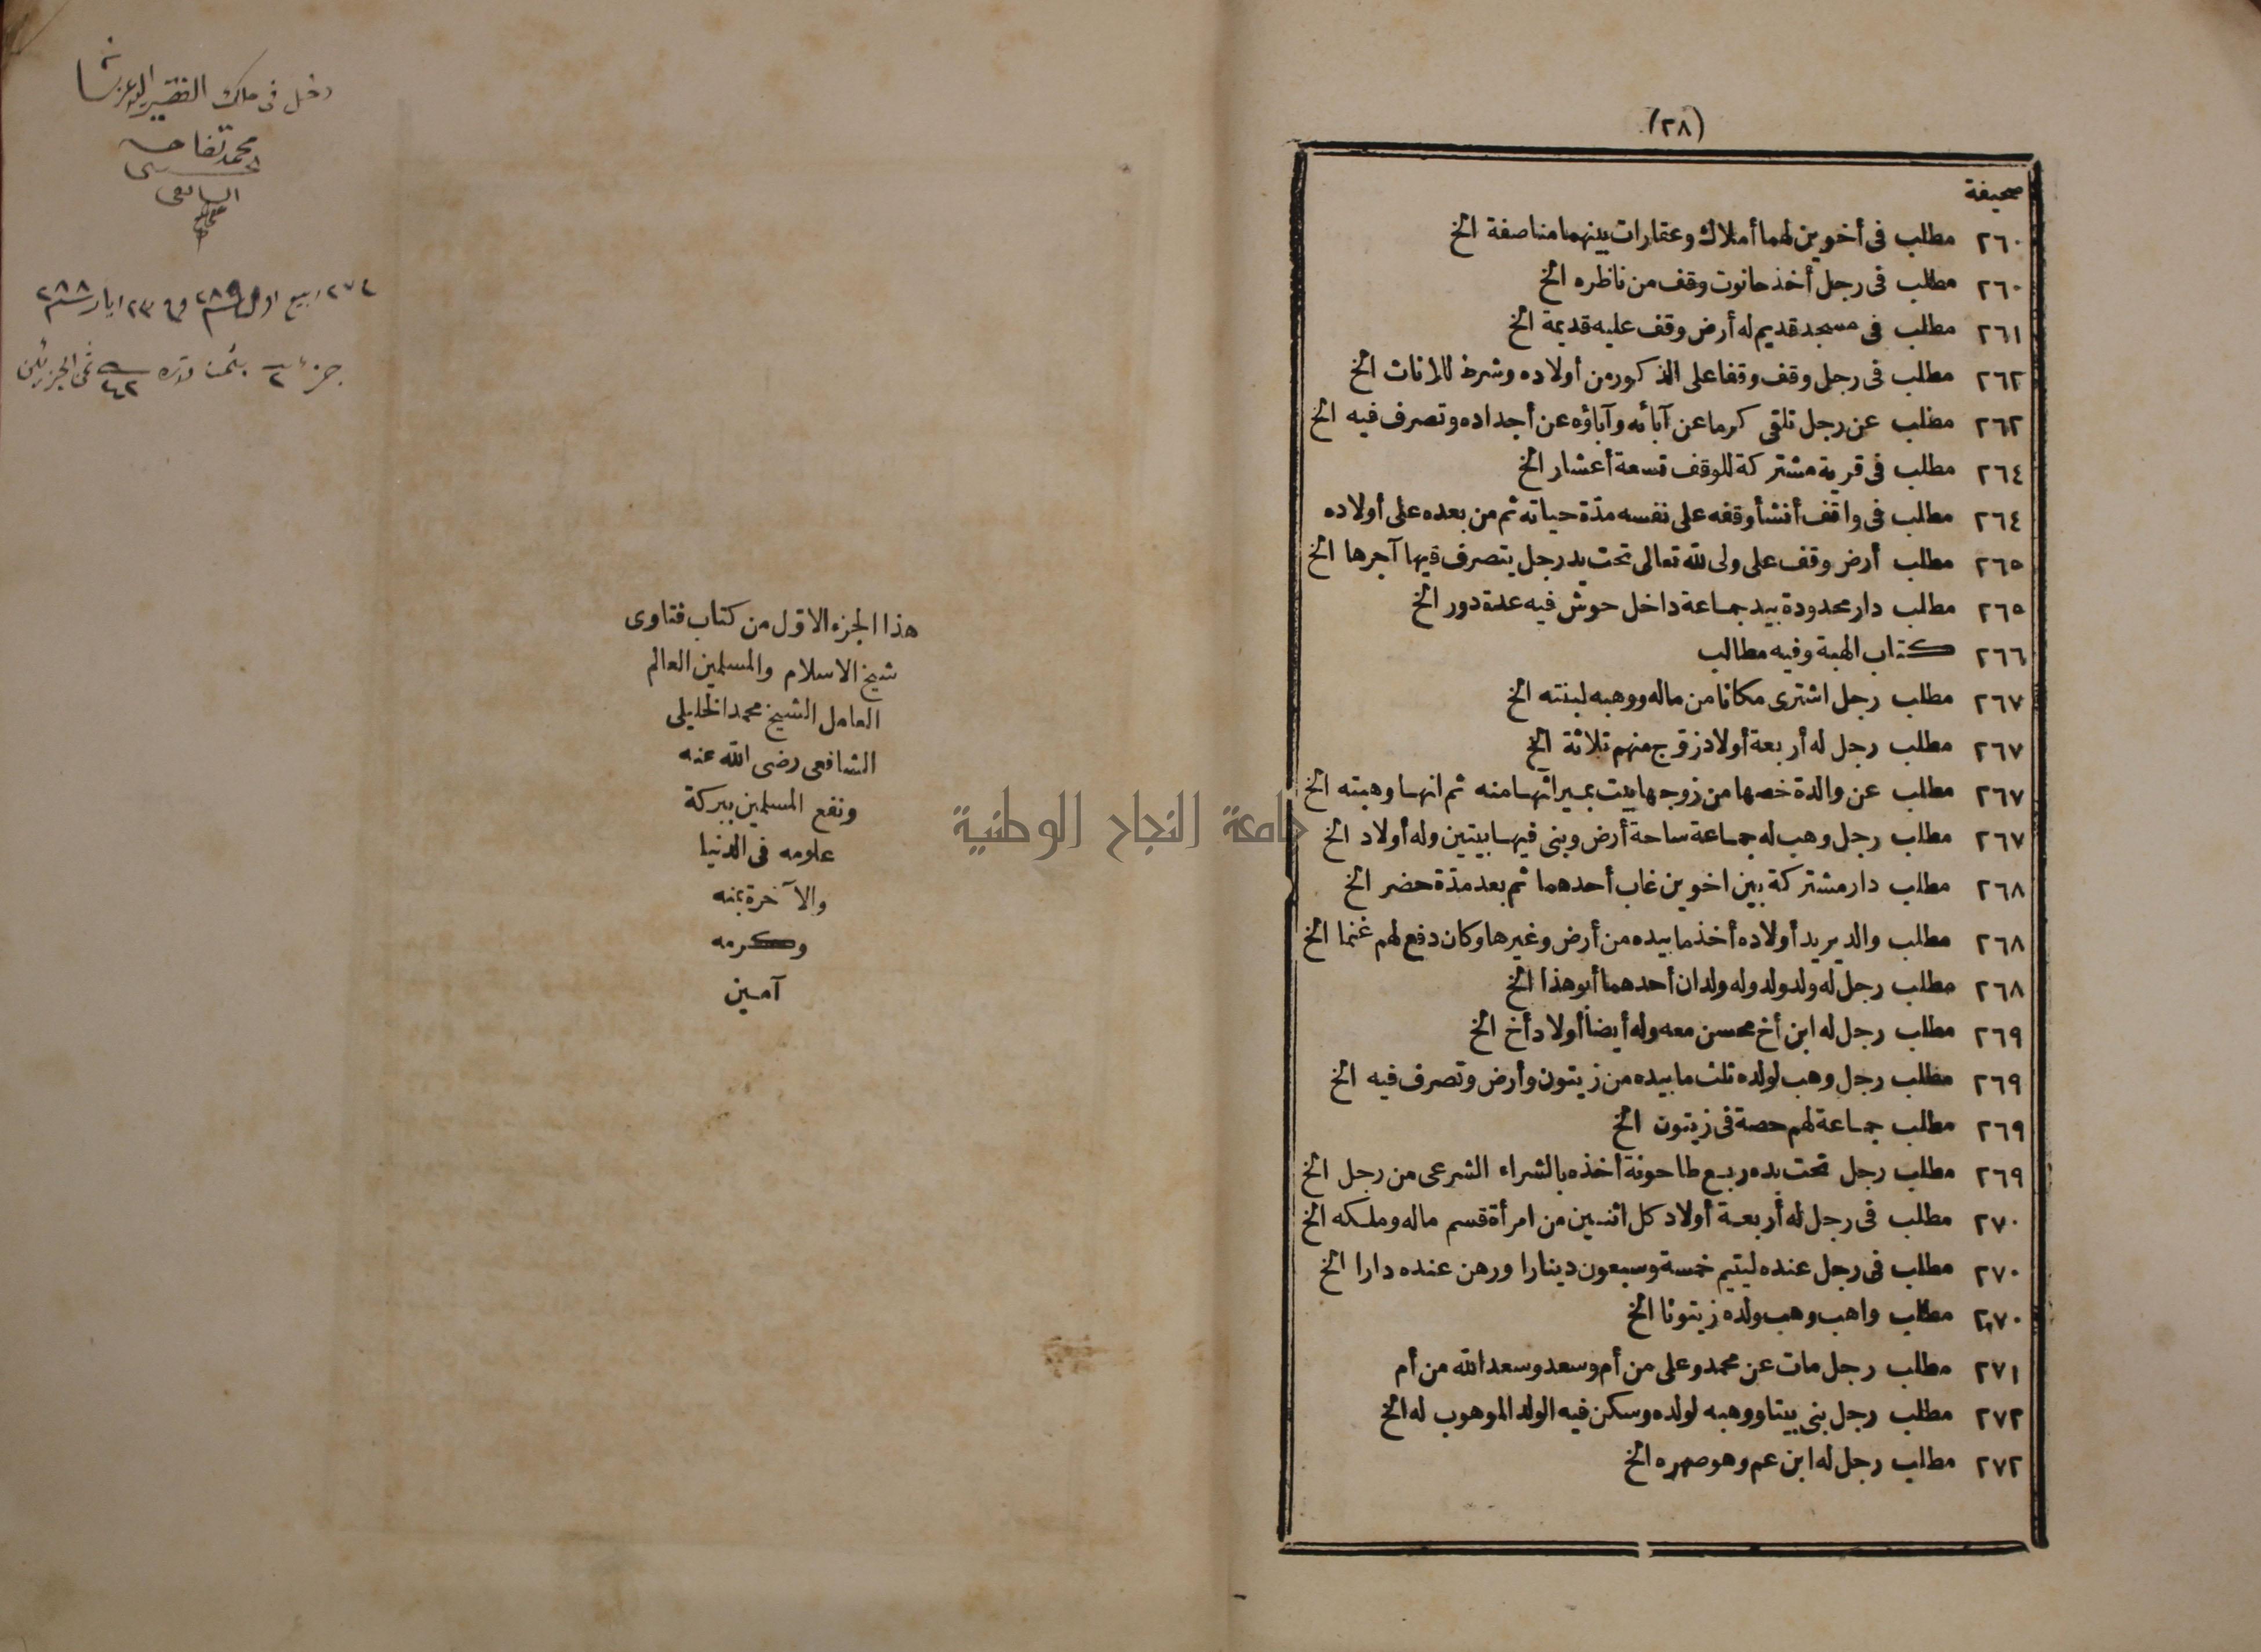 (٢٨)
صحيفة
٢٦٠ مطلب فى أخوين لهما أملاك وعقارات بينهما مناصفة الخ
٢٦٠ مطلب فى رجل أخذ حانوت وقف من ناظره الخ
٢٦١ مطلب فى مسجد قديم له أرض وقف عليه قديمة الخ
٢٦٢ مطلب فى رجل وقف وقفا على الذكور من أولاده وشرط للاناث الخ
٢٦٢ مطلب عن رجل تلقى كرما عن آبائه وآباؤه عن أجداده وتصرف فيه الخ
٢٦٤ مطلب فى قرية مشتركة للوقف تسعة أعشار الخ
٢٦٤ مطلب فى واقف أنشأ وقفه على نفسه مدّة حياته ثم من بعده على أولاده
٢٦٥ مطلب أرض وقف على ولى لله تعالى تحت يد رجل يتصرف فيها آجرها الخ
٢٦٥ مطلب دار محدودة بيد جماعة داخل حوش فيه عدة دور الخ
٢٦٦ كتاب الهبة وفيه مطالب
٢٦٧ مطلب رجل اشترى مكانا من ماله ووهبه لبنته الخ
٢٦٧ مطلب رجل له أربعة أولاد زوّج منهم ثلاثة الخ
٢٦٧ مطلب عن والدة خصها من زوجها بيت بميراثها منه ثم انها وهبته الخ
٢٦٧ مطلب رجل وهب له جماعة ساحة أرض وبنى فيها بيتين وله أولاد الخ
٢٦٨ مطلب دار مشتركة بين اخوين غاب أحدهما ثم بعد مدّة حضر الخ
٢٦٨ مطلب والد يريد أولاده أخذ ما بيده من أرض وغيرها وكان دفع لهم غنما الخ
٢٦٨ مطلب رجل له ولد ولد وله ولدان أحدهما أبو هذا الخ
٢٦٩ مطلب رجل له ابن أخ محسن معه وله أيضا أولاد أخ الخ
٢٦٩ مطلب رجل وهب لولده ثلث ما بيده من زيتون وأرض وتصرف فيه الخ
٢٦٩ مطلب جماعة لهم حصة فى زيتون الخ
٢٦٩ مطلب رجل تحت يده ربع طاحونة أخذه بالشراء الشرعى من رجل الخ
٢٧٠ مطلب فى رجل له أربعة أولاد كل اثنين من امرأة قسم ماله وملكه الخ
٢٧٠ مطلب فى رجل عنده ليتيم خمسة وسبعون دينارا ورهن عنده دارا الخ
٢٧٠ مطلب واهب وهب ولده زيتونا الخ
٢٧١ مطلب رجل مات عن محمد وعلى من أم وسعد وسعد الله من أم
٢٧٢ مطلب رجل بنى بيتا ووهبه لولده وسكن فيه الولد الموهوب له الخ
٢٧٢ مطلب رجل له ابن عم وهو صهره الخ
دخل فى ملك الفقير
محمد تفاحه
ربيع اول ٢٨٩ و فى ٢٣ ايار ٢٨٨
جزء ٢ بثمن قدره ٤٢ ثمن الجزئين
هذا الجزء الاوّل من كتاب فتاوى
شيخ الاسلام والمسلمين العالم
العامل الشيخ محمد الخليلى
الشافعى رضى الله عنه
ونفع المسلمين ببركة
علومه فى الدنيا
والآخرة بمنه
وكرمه
آمين
جامعة النجاح الوطنية